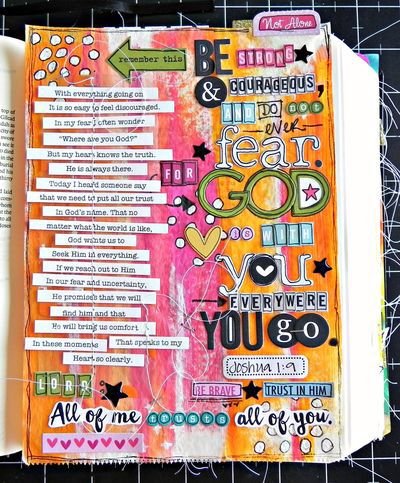 Not Alone
remember this
With everything going on
It is so easy to feel discouraged.
In my fear I often wonder
"Where are you God?"
But my heart knows the truth.
He is always there.
Today I heard someone say
that we need to put all our trust
in God's name. That no
matter what the world is like,
God wants us to
Seek Him in everything.
If we reach out to Him
In our fear and uncertainty,
He promises that we will
find him and that
He will bring us comfort
In these moments
That speaks to my
Heart so clearly.
BE STRONG
& COURAGEOUS,
AND DO not
EVER
fear.
FOR GOD
is WITH
you
EVERYWERE
YOU go.
Joshua 1:9
BE BRAVE
TRUST IN HIM
LORD
All of me trusts all of you.